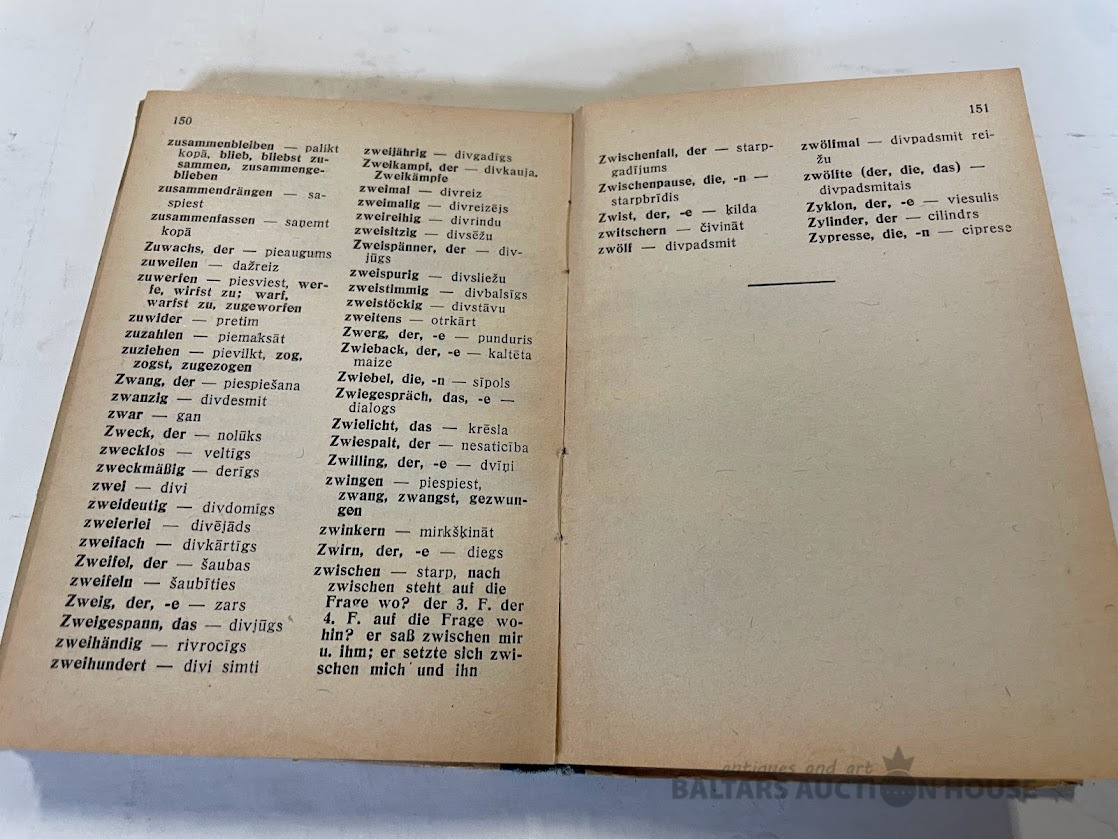 150
zusammenbleiben — palikt
kopā, blieb, bliebst zu-
sammen, zusammenge-
blieben
zusammendrängen — sa-
spiest
zusammenfassen — saņemt
kopā
Zuwachs, der — pieaugums
zuweilen — dažreiz
zuwerfen — piesviest, wer-
fe, wirfst zu; warf,
warfst zu, zugeworfen
zuwider — pretim
zuzahlen — piemaksāt
zuziehen — pievilkt, zog,
zogst, zugezogen
Zwang, der — piespiešana
zwanzig — divdesmit
zwar — gan
Zweck, der — nolūks
zwecklos — veltīgs
zweckmäßig — derīgs
zwei — divi
zweideutig — divdomīgs
zweierlei — divējāds
zweifach — divkārtīgs
Zweifel, der — šaubas
zweifeln — šaubīties
Zweig, der, -e — zars
Zweigespann, das — divjūgs
zweihändig — rivrocīgs
zweihundert — divi simti
zweijährig — divgadīgs
Zweikampf, der — divkauja,
Zweikämpfe
zweimal — divreiz
zweimalig — divreizējs
zweireihig — divrindu
zweisitzig — divsēžu
Zweispänner, der — div-
jūgs
zweispurig — divsliežu
zweistimmig — divbalsīgs
zweistöckig — divstāvu
zweitens — otrkārt
Zwerg, der, -e — punduris
Zwieback, der, -e — kaltēta
maize
Zwiebel, die, -n — sīpols
Zwiegespräch, das, -e —
dialogs
Zwielicht, das — krēsla
Zwiespalt, der — nesaticība
Zwilling, der, -e — dvīņi
zwingen — piespiest,
zwang, zwangst, gezwun-
gen
zwinkern — mirkšķināt
Zwirn, der, -e — diegs
zwischen — starp, nach
zwischen steht auf die
Frage wo? der 3. F. der
4. F. auf die Frage wo-
hin? er saß zwischen mir
u. ihm; er setzte sich zwi-
schen mich und ihn
151
Zwischenfall, der — starp-
gadījums
Zwischenpause, die, -n —
starpbrīdis
Zwist, der, -e — ķilda
zwitschern — čivināt
zwölf — divpadsmit
zwölfmal — divpadsmit rei-
žu
zwölfte (der, die, das) —
divpadsmitais
Zyklon, der, -e — viesulis
Zylinder, der — cilindrs
Zypresse, die, -n — ciprese
antiques and art
BALTARS AUCTION HOUSE